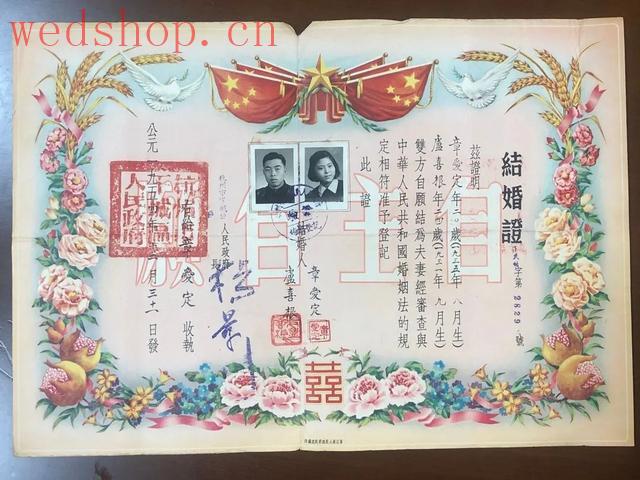 wedshop.cn
結婚證
字第2829號
茲證明
章愛定年二〇歲(一九三五年八月生)
盛喜根年二四歲(一九三一年九月生)
雙方自願結爲夫妻經審查與
中華人民共和國婚姻法的規
定相符准予登記
此證
自主自願
結婚人
章愛定
盛喜根
人民政府
長
杭州市
下城區
人民政府
右給章愛定收執
公元一九五四年三月三十一日發
囍